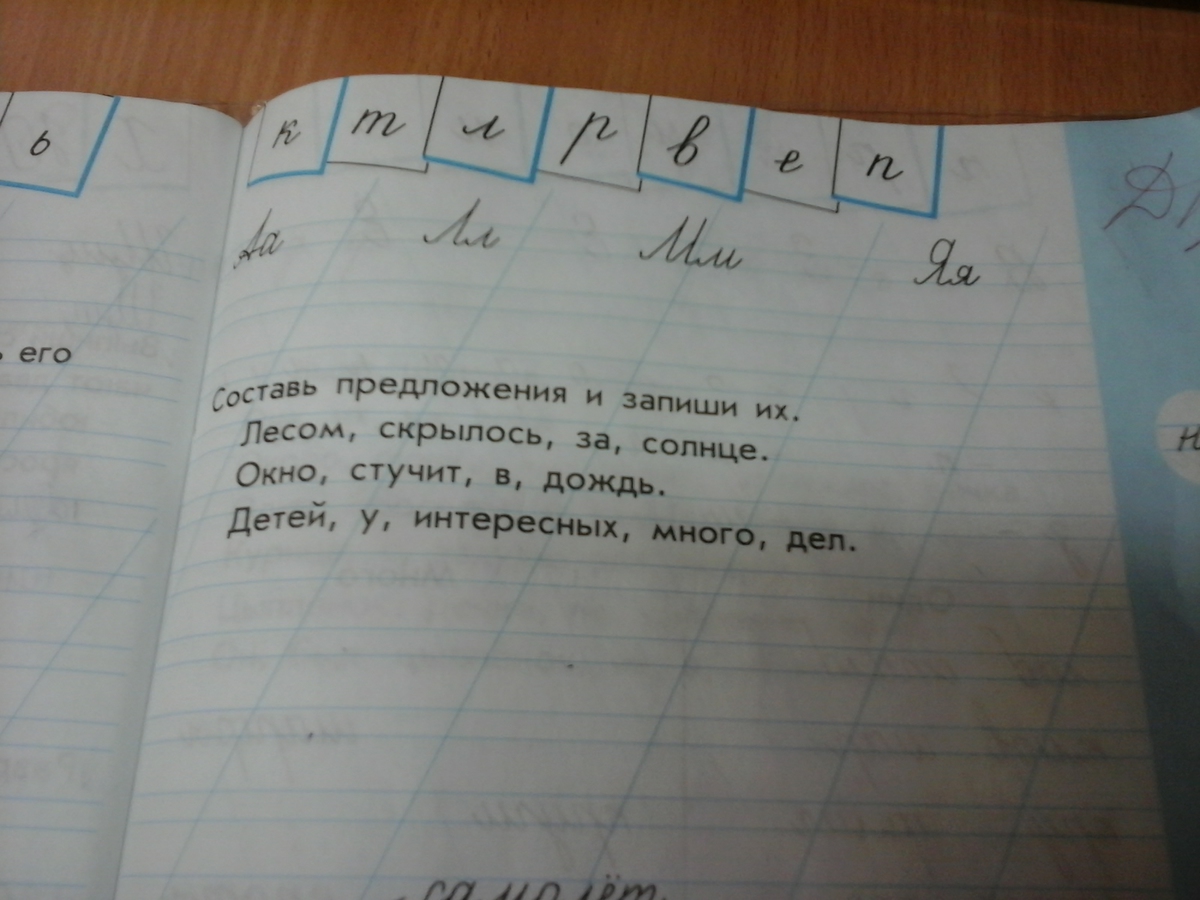 ь к т л р в е п
Аа Лл Мм Яя
его
Составь предложения и запиши их.
Лесом, скрылось, за, солнце.
Окно, стучит, в, дождь.
Детей, у, интересных, много, дел.
самолёт